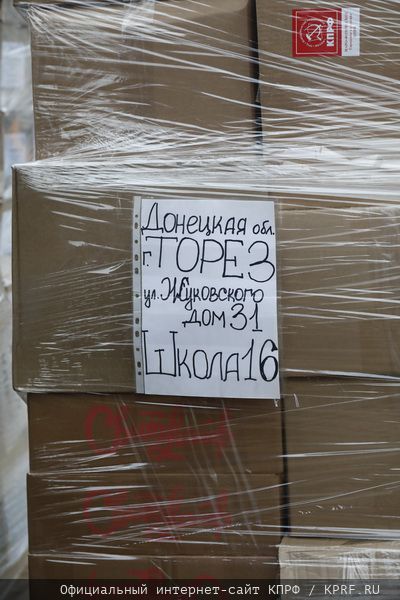 КПРФ
Донецкая обл.
г. ТОРЕЗ
ул. Жуковского
дом 31
Школа 16
Официальный интернет-сайт КПРФ / KPRF.RU